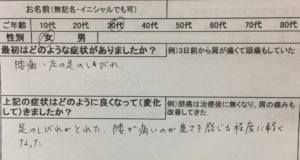 お名前（無記名・イニシャルでも可）
ご年齢 10代 20代 30代 40代 50代 60代 70代 80代
性別 女 男
最初はどのような症状がありましたか？ 例）3日前から肩が痛くて頭痛もしていた
腰痛・左の足のしびれ
上記の症状はどのように良くなって（変化して）きましたか？ 例）頭痛は治療後に無くなり、肩の痛みも改善してきた
足のしびれがとれた、腰が痛いのが重さを感じる程度に軽く
なった